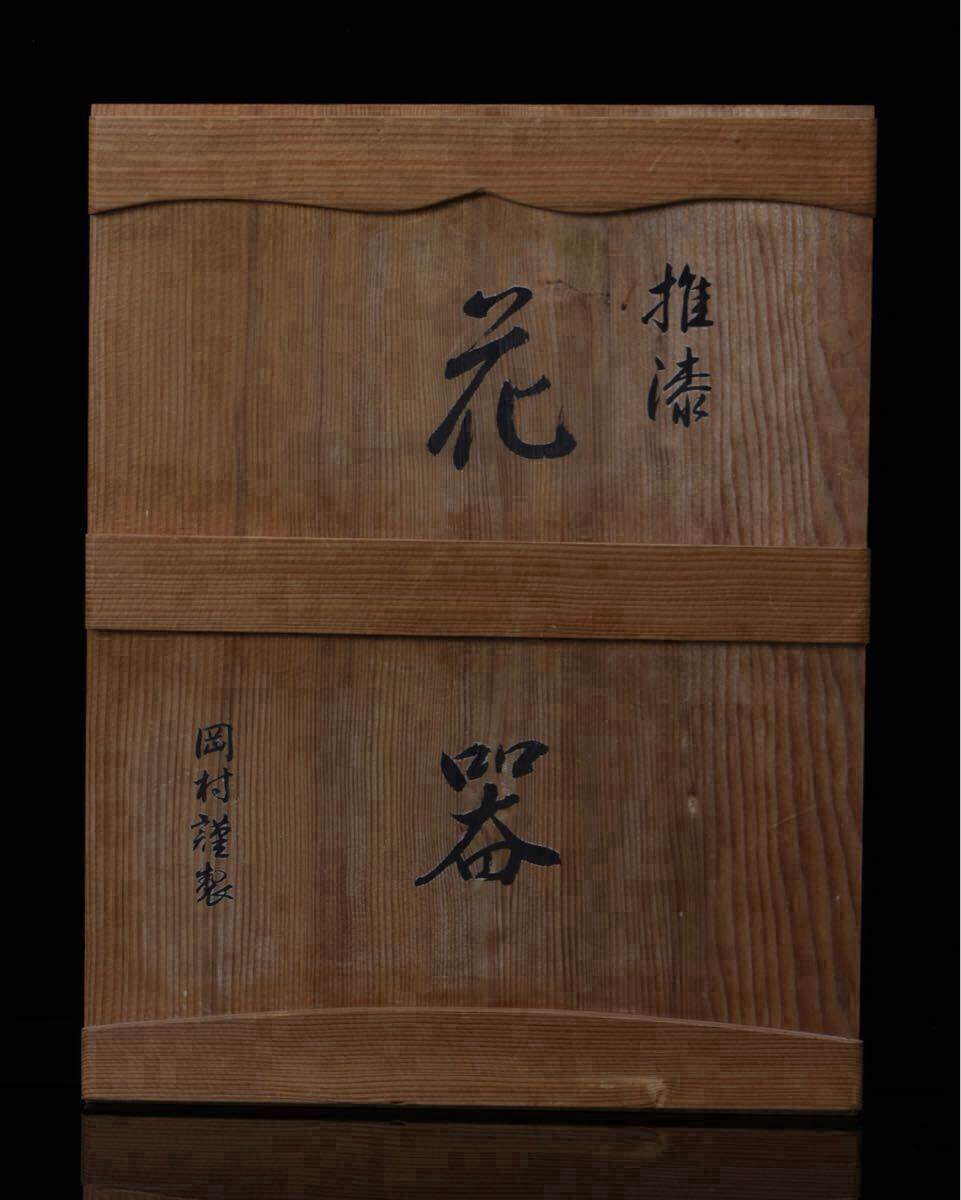 推漆
花器
岡村謹製